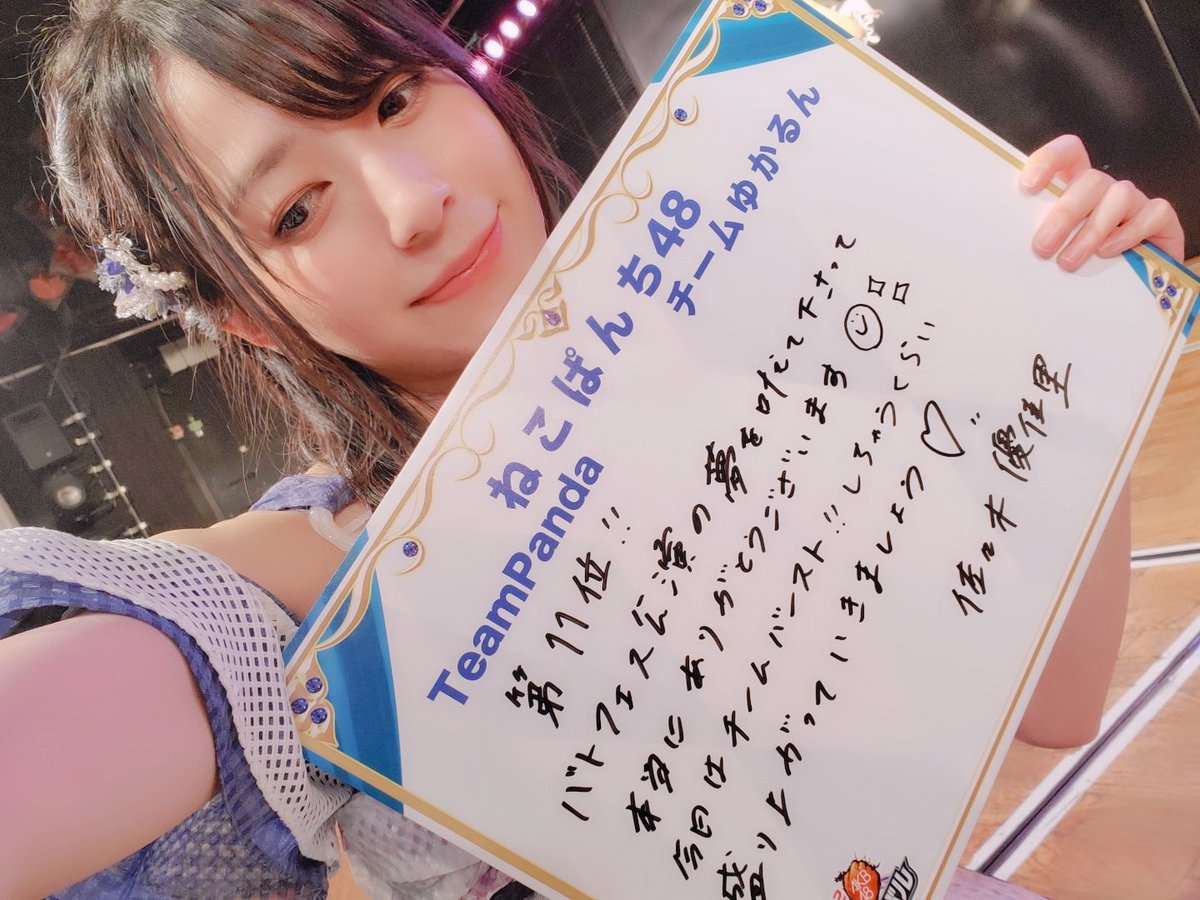 ねこぱんち48
チームゆかるん
TeamPanda
第11位!!
バトフェス公演の夢を口だて下さって
本当にありがとうございます
今日はチームバースト!!しちゃうくらい
盛り上がっていきましょう♡
佐々木優佳里
AKB48